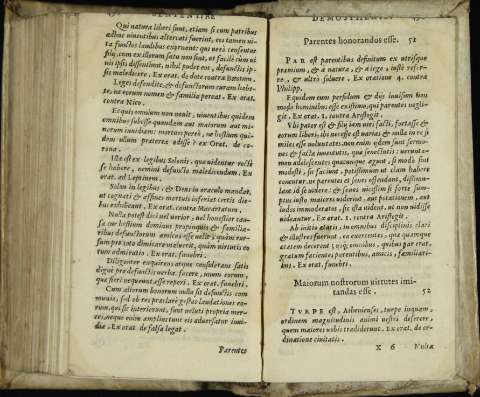 SENTENTIAE
Qui natura liberi sunt, etiam si cum patribus
acrius viventibus altercati fuerint, eos tamen vi-
ta functos laudibus exornant: qui verò censentur
filij, cum ex illorum satu non sint, ut facilè cum vi-
vis ipsis dissentiunt, nihil pudet eos, defunctis ip-
sis maledicere. Ex orat. de dote contra Bœotum.
Leges defendite, & defunctorum curam habe-
te, ne eorum nomen & familia pereat. Ex orat.
contra
Ecquis omnium non novit, viventibus quidem
omnibus subesse quandam aut maiorem aut mi-
norem invidiam: mortuos verò, ne hostium qui-
dem ullum praeterea odisse? Ex Orat. de co-
rona.
Iste est ex legibus Solonis, qua videntur rectè
se habere, nemini defuncto maledicendum. Ex
orat. ad Leptinem.
Solon in legibus, & Deus in oraculo mandat,
ut cognati & affines mortuis inferias certis die-
bus exhibeant. Ex orat. contra Macartatum.
Nulla potest dici vel verior, vel honestior cau-
sa cur hostium dominus propinquis & familia-
ribus defunctorum amicus esse velit, quàm rur-
sum pro voto dimicare maluerit, quàm virtutis eo-
rum admiratio. Ex orat. funebri.
Diligenter exquirens atque considerans satis
dignè pro defunctis verba facere, unum eorum,
quæ fieri nequeunt esse reperi. Ex orat. funebri.
Cum aliorum bonorum nulla sit defunctis com-
munio, sed ob res praeclarè gestas laudationes eo-
rum, qui sic interierunt, sunt veluti propria mer-
ces, neque enim amplius tunc eis adversatur invi-
dia. Ex orat. de falsa legat.
Parentes
DEMOSTHENIS
Parentes honorandos esse. 51
PAR est parentibus definitum ex utrisque
praemium, & à natura, & à lege, iustè refer-
re, & ultrò solvere. Ex oratione 4. contra
Philipp.
Equidem eum perfidum & dijs invisum non
modo hominibus esse existimo, qui parentes neglli-
git. Ex orat. 1. contra Aristogit.
Ubi pater est & filij iam viri facti, fortasse &
eorum liberi, ibi necesse est varias & nulla in re si
miles esse voluntates. non enim ijdem sunt sermo-
nes & facta iuventutis, quæ senectutis: verunta-
men adolescentes quæcunque agunt, si modò sint
modesti, sic faciunt, potissimum ut clam habere
conentur.
id se videre: & senes vicissim si fortè sum-
ptus iusto maiores viderint, aut potationem, aut
ludos immoderatos, sic ista vident, ut non vidisse
videantur. Ex orat. 1. contra Aristogit.
Ab initio ætatis in omnibus disciplinis clari
& illustres fuerunt, ea exercentes, quæ quamque
ætatem decerent
gratum facientes parentibus, amicis, familiari-
bus. Ex orat. funebri.
Maiorum nostrorum virtutes imi-
tandas esse. 52
TVRPE est, Athenienses, turpe inquam,
ordinem magnitudinis animi nostri deserere,
quem maiores vobis tradiderunt. Ex orat. de or-
dinatione civitatis.
X 6 Nolite